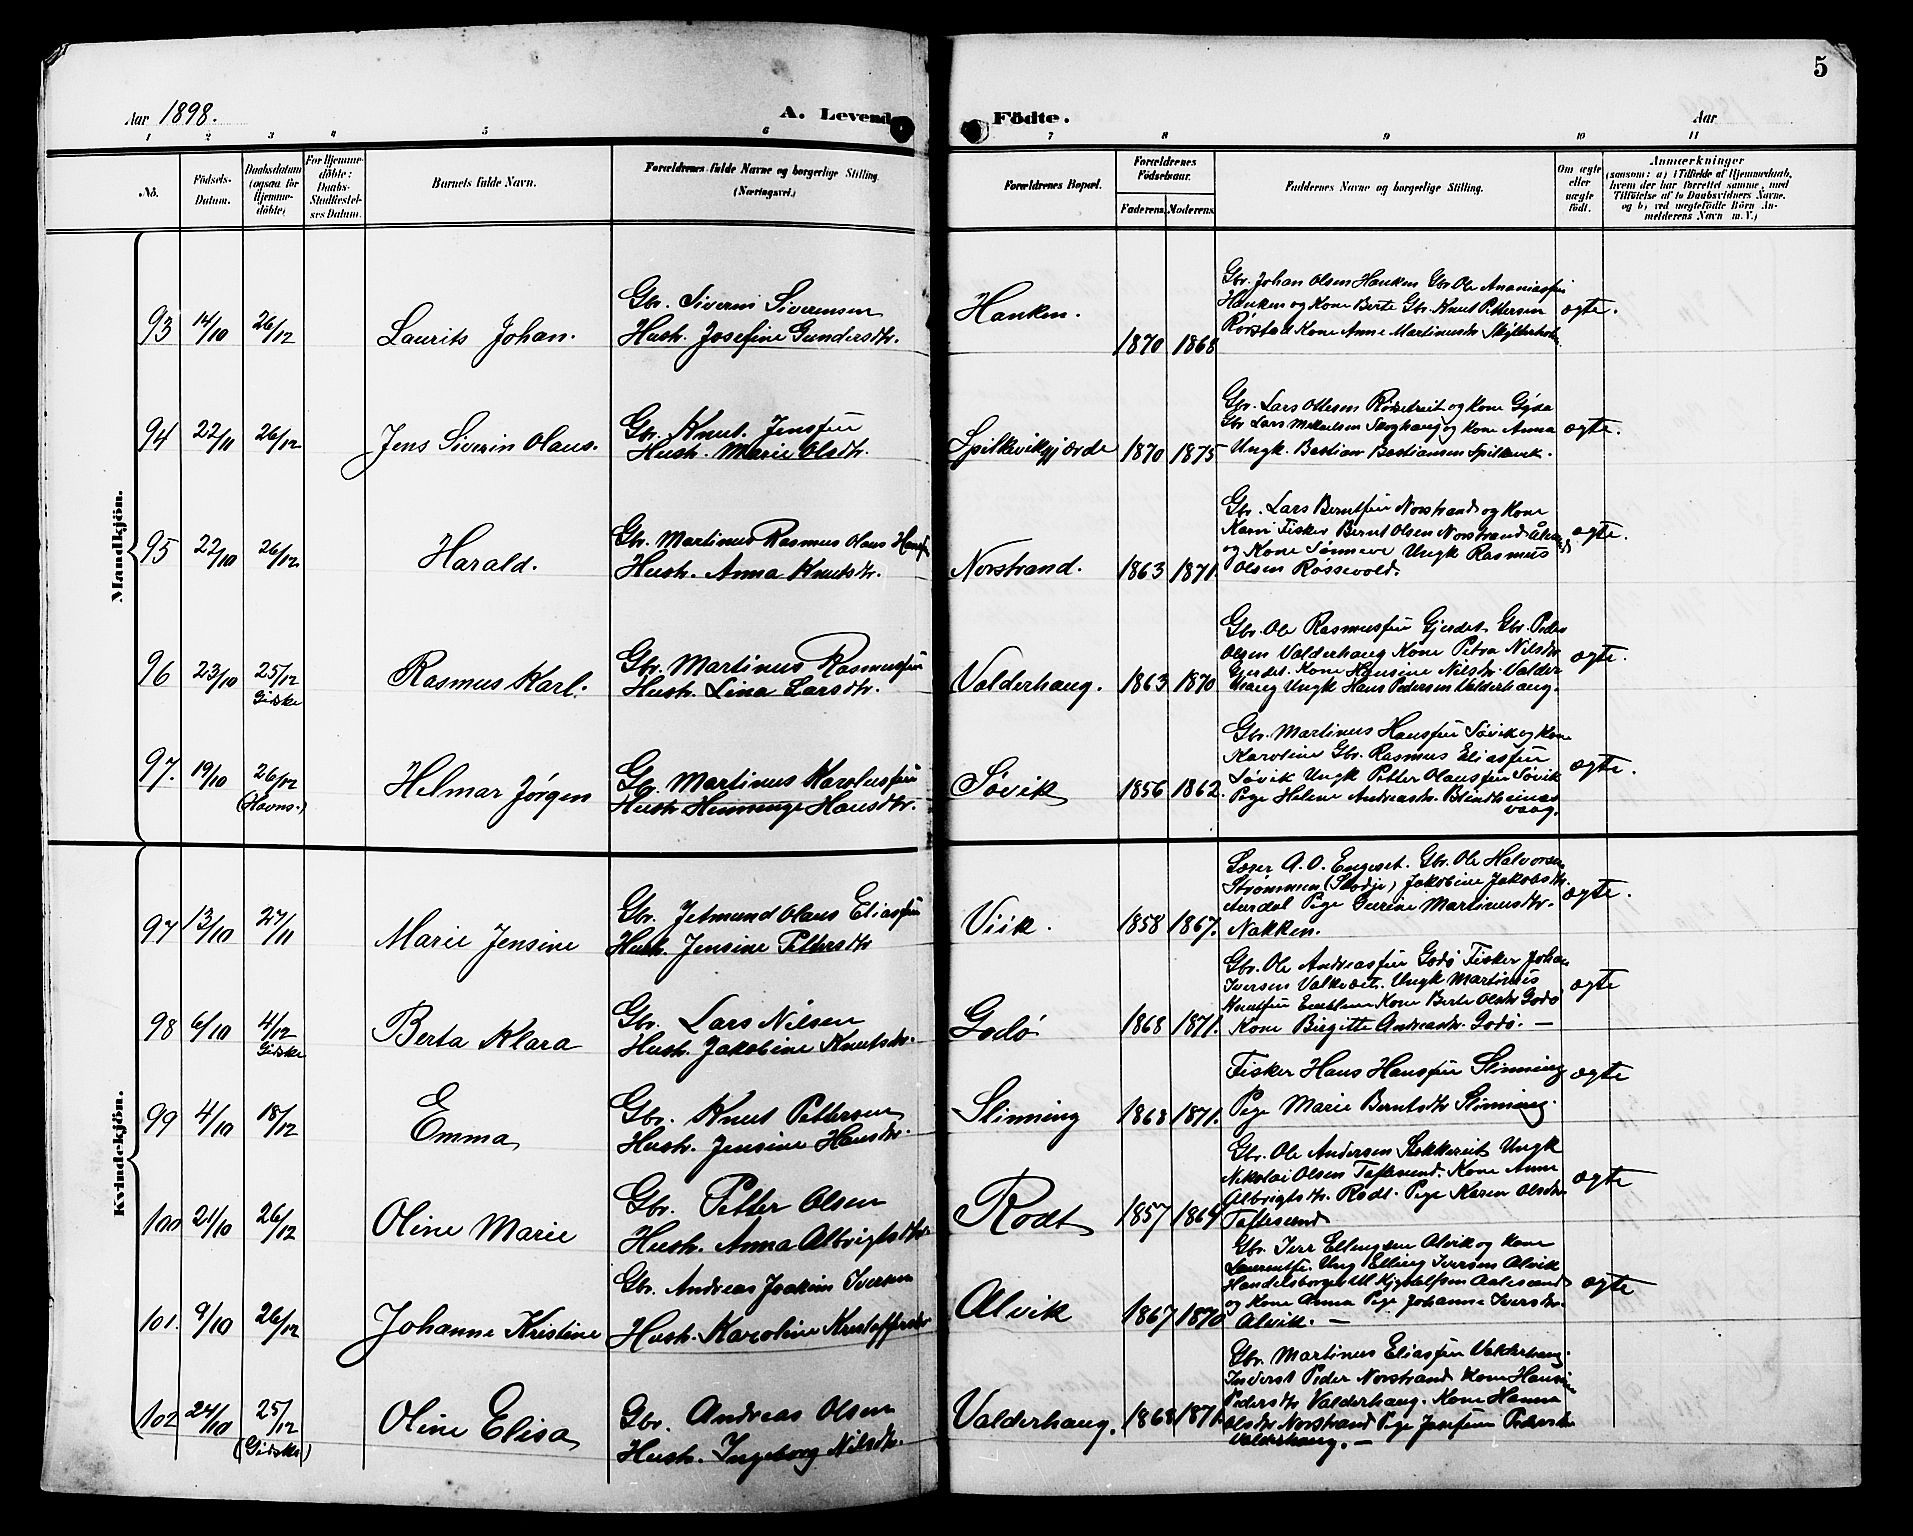 5
Aar 1898.
A. Levende
Födte.
Aar
1 2 3 4 5 6 7 8 9 10 11
No.
Födsels-Datum.
Daabsdatum (ogsaa for Hjemme-döbte)
For Hjemme-döbte: Daabs-Stadfæstel-ses Datum.
Barnets fulde Navn.
Forældrenes fulde Navne og borgerlige Stilling. (Næringsvei.)
Forældrenes Bopæl.
Forældrenes Födselsaar.
Faderens. Moderens.
Faddernes Navne og borgerlige Stilling.
Om ægte eller uægte födt.
Anmærkninger
(saasom: a) i Tilfælde af Hjemmedaab,
hvem der har forrettet samme, med
Tilföielse af to Daabsvidners Navne.
og b) ved uægtefödte Börn An-
melderens Navn m. V.)
Mandkjön.
93 14/10 26/12 Laurits Johan.
Gbr. Siverin Siverinsen
Hustr. Josefine Gundersdtr.
Hanken. 1870 1868
Gbr. Johan Olsen Hanken Gbr. Ole Ananiassen
Hanken og Kone Berte Gbr. Knut Pettersen
Rørstad Kone Anne Martinusdtr.
ægte.
94 22/11 26/12 Jens Siverin Olaus.
Gbr. Knut. Jenssen
Hustr. Marie Olsdtr.
Spilkevikgjærde 1870 1875
Gbr. Lars Ottesen Rødsetreit og kone Gyda
Gbr. Lars Mikaelsen Skoghaug og kone Anna
Ungk. Bastian Bastiansen Spilkevik.
ægte.
95 22/10 26/12 Harald.
Gbr. Martinus Rasmus Olaus Hansen
Hustr. Anna Knutsdtr.
Norstrand. 1863 1871.
Gbr. Lars Berntsen Norstrand og kone
Karn Fisker Bernt Olsen Norstrand
og Kone Sønneve Ungk Rasmus
Olsen Røssevold.
ægte.
96 23/10 25/12 Giske Rasmus Karl.
Gbr. Martinus Rasmussen
Hustr. Lina Larsdtr.
Valderhaug. 1863 1870
Gbr. Ole Rasmussen Gjerdet Gbr. Peder
Olsen Valderhaug Kone Petra Nilsdtr.
Gjerdet. Kone Hansine Nilsdtr. Valder
haug Ungk Hans Pedersen Valderhaug.
ægte.
97. 19/10 26/12 (Havns.) Helmar Jørgen
Gb. Martinus Karolussen
Hustr. Henninge Hansdtr.
Søvik 1856 1862.
Gbr. Martinus Hanssen Søvik og kone
Karoline Gbr. Rasmus Eliassen
Søvik Ungk Petter Olaussen Søvik
Pige Helene Andreasdtr. Blindheims
vaag.
ægte.
Kvindekjön.
97 13/10 27/11 Marie Jensine
Gbr. Jetmund Olaus Eliassen
Hustr. Jensine Pettersdtr
Viik. 1858 1867.
Lærer A. O. Engeset. Gbr. Ole Halvorsen
Strømmen (Skodje) Jakobine Jakobsdtr.
Aursdal Pige Gurine Martinusdtr.
Nakken.
ægte.
98 6/10 4/12 Gidske Berta Klara
Gbr. Lars Nilsen
Hustr. Jakobine Knutsdtr.
Godø 1868 1871.
Gbr. Ole Andreassen Godø Fisker Johan
Iversen Valkvæt. Ungk Martinus
Knutsen Emblem Kone Berte Olsdtr Godø
Kone Birgitte Andreasdtr. Godø. —
ægte
99 4/10 18/12 Emma
Gbr. Knut Pettersen
Hustr. Jensine Hansdtr.
Slinning 1868 1871.
Fisker Hans Hanssen Slinning
Pige Marie Berntsdtr Slinning.
ægte
100 21/10 26/12 Oline Marie
Gbr. Petter Olsen
Hustr. Anna Albrigtsdtr.
Rodt 1857 1864
Gbr. Ole Andersen Stokkereit Ungk
Nikolai Olsen Taftesund. Kone Anne
Albrigtsdtr. Rodt. Pige Karen Olsdtr
Taftesund
ægte
101. 9/10 26/12 Johanne Kristine
Gbr. Andreas Joakim Iversen
Hustr. Karoline Kristoffersdtr
Alvik 1867 1870
Gbr. Iver Ellingsen Alvik og kone
Laurentse. Ung Elling Iversen Alvik
Handelsborger Aalesund
og kone Anna Pige Johanne Iversdtr.
Alvik. —
ægte
102 24/10 25/12 (Gidske) Oline Elisa
Gbr. Andreas Olsen
Hustr. Ingeborg Nilsdtr.
Valderhaug. 1868 1871.
Gbr. Martinus Eliassen Valderhaug.
Inderst Peder Norstrand Kone Hansine
Pedersdtr Valderhaug. Kone Hanna
Olsdtr. Norstrand Pige Josefine Pedersdtr
Valderhaug. —